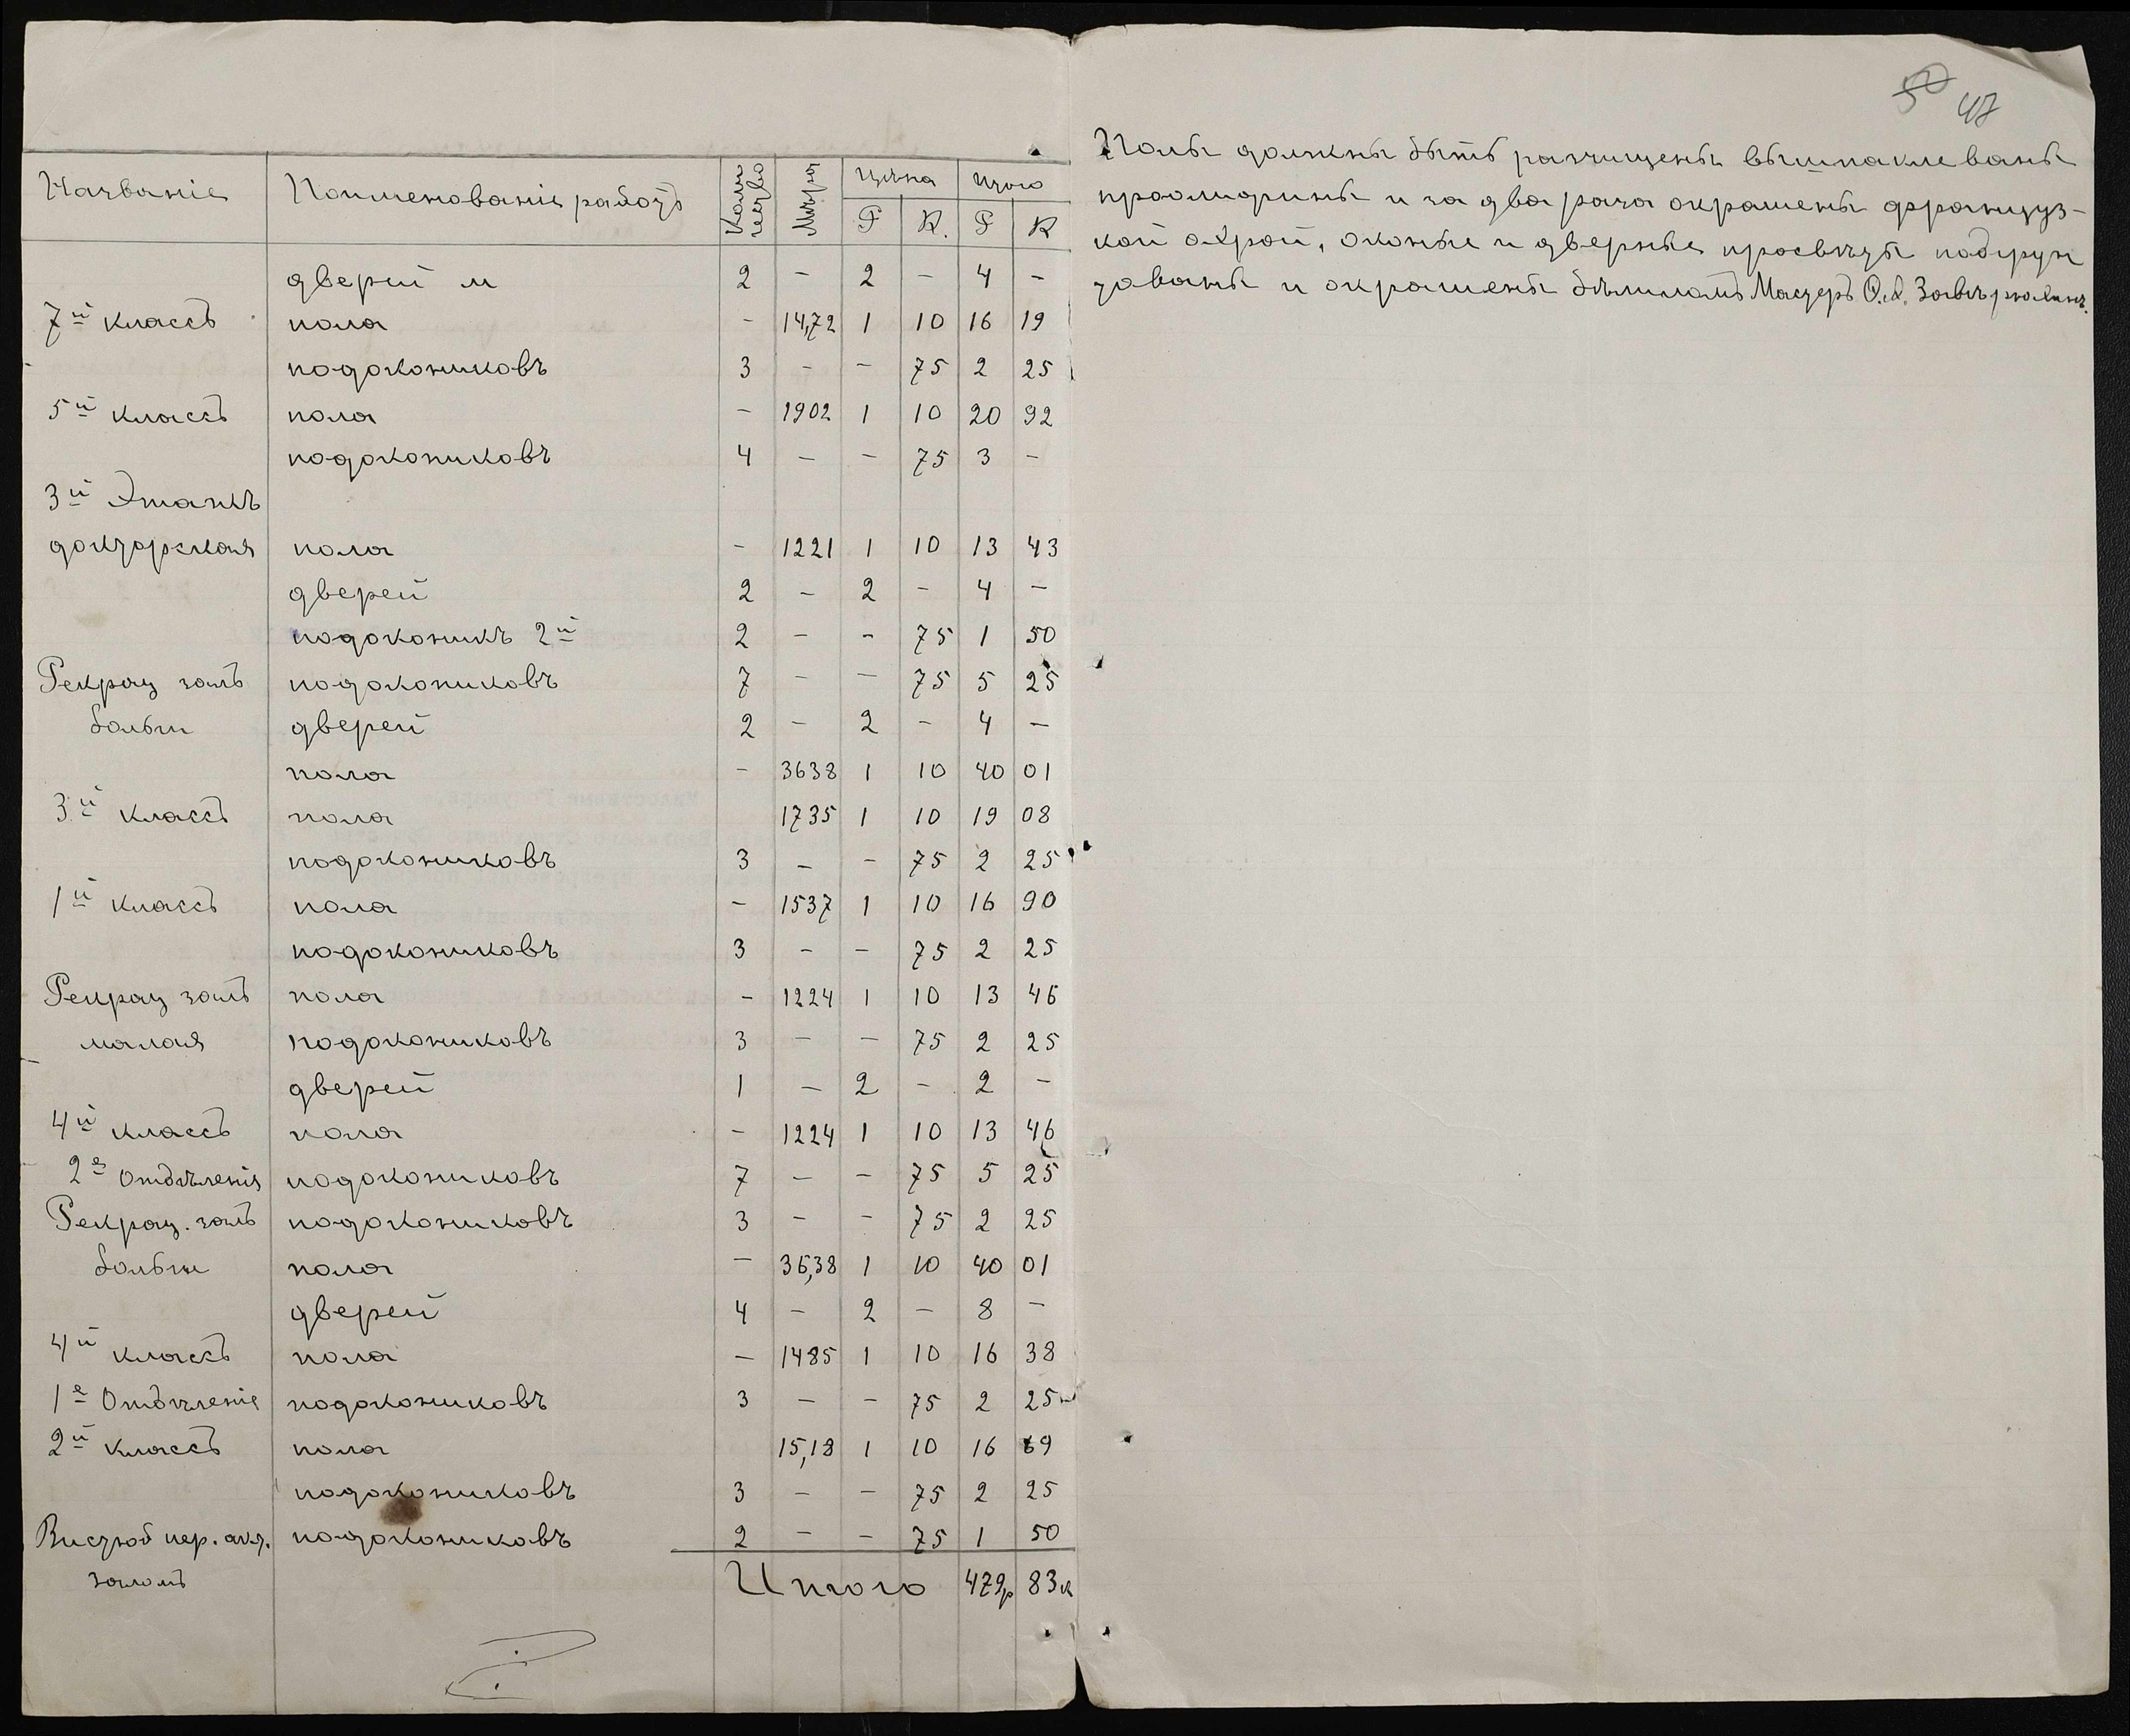 Названіе Поименованіе работъ Коли чество Мѣра Цѣна Итого
Р К. Р К
дверей м 2 - 2 - 4 -
7й классъ пола - 14,72 1 10 16 19
подокониковъ 3 - - 75 2 25
5й классъ пола - 1902 1 10 20 92
подокониковъ 4 - - 75 3 -
3й Этажъ
докторская пола - 1221 1 10 13 43
дверей 2 - 2 - 4 -
подоконикъ 2й 2 - - 75 1 50
Рекрац залъ подокониковъ 7 - - 75 5 25
больш дверей 2 - 2 - 4 -
пола - 3638 1 10 40 01
3й классъ пола 1735 1 10 19 08
подокониковъ 3 - - 75 2 25
1й классъ пола - 1537 1 10 16 90
подокониковъ 3 - - 75 2 25
Рекрац залъ пола - 1224 1 10 13 46
малая подокониковъ 3 - - 75 2 25
дверей 1 - 2 - 2 -
4й классъ пола - 1224 1 10 13 46
2е Отдѣленія подокониковъ 7 - - 75 5 25
Рекрац. залъ подокониковъ 3 - - 75 2 25
больш пола - 36,38 1 10 40 01
дверей 4 - 2 - 8 -
4й классъ пола - 1485 1 10 16 38
1е Отдѣленіе подокониковъ 3 - - 75 2 25
2й классъ пола 15,18 1 10 16 69
подокониковъ 3 - - 75 2 25
пер. подокониковъ 2 - - 75 1 50
заломъ Итого 479р 83к
50 47
Полы должны быть расчищены вышпаклеваны
проолифины и за два раза окрашены француз-
кой охрой, оконые и дверные просвѣты подгрун
тованы и окрашены бѣлиломъ Мастеръ